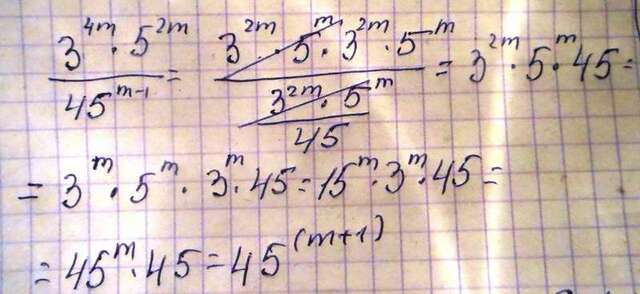 3^{4m} · 5^{2m} / 45^{m-1} = 3^{2m} · 5^m · 3^{2m} · 5^m / (3^{2m} · 5^m / 45) = 3^{2m} · 5^m · 45 =
= 3^m · 5^m · 3^m · 45 = 15^m · 3^m · 45 =
= 45^m · 45 = 45^{(m+1)}